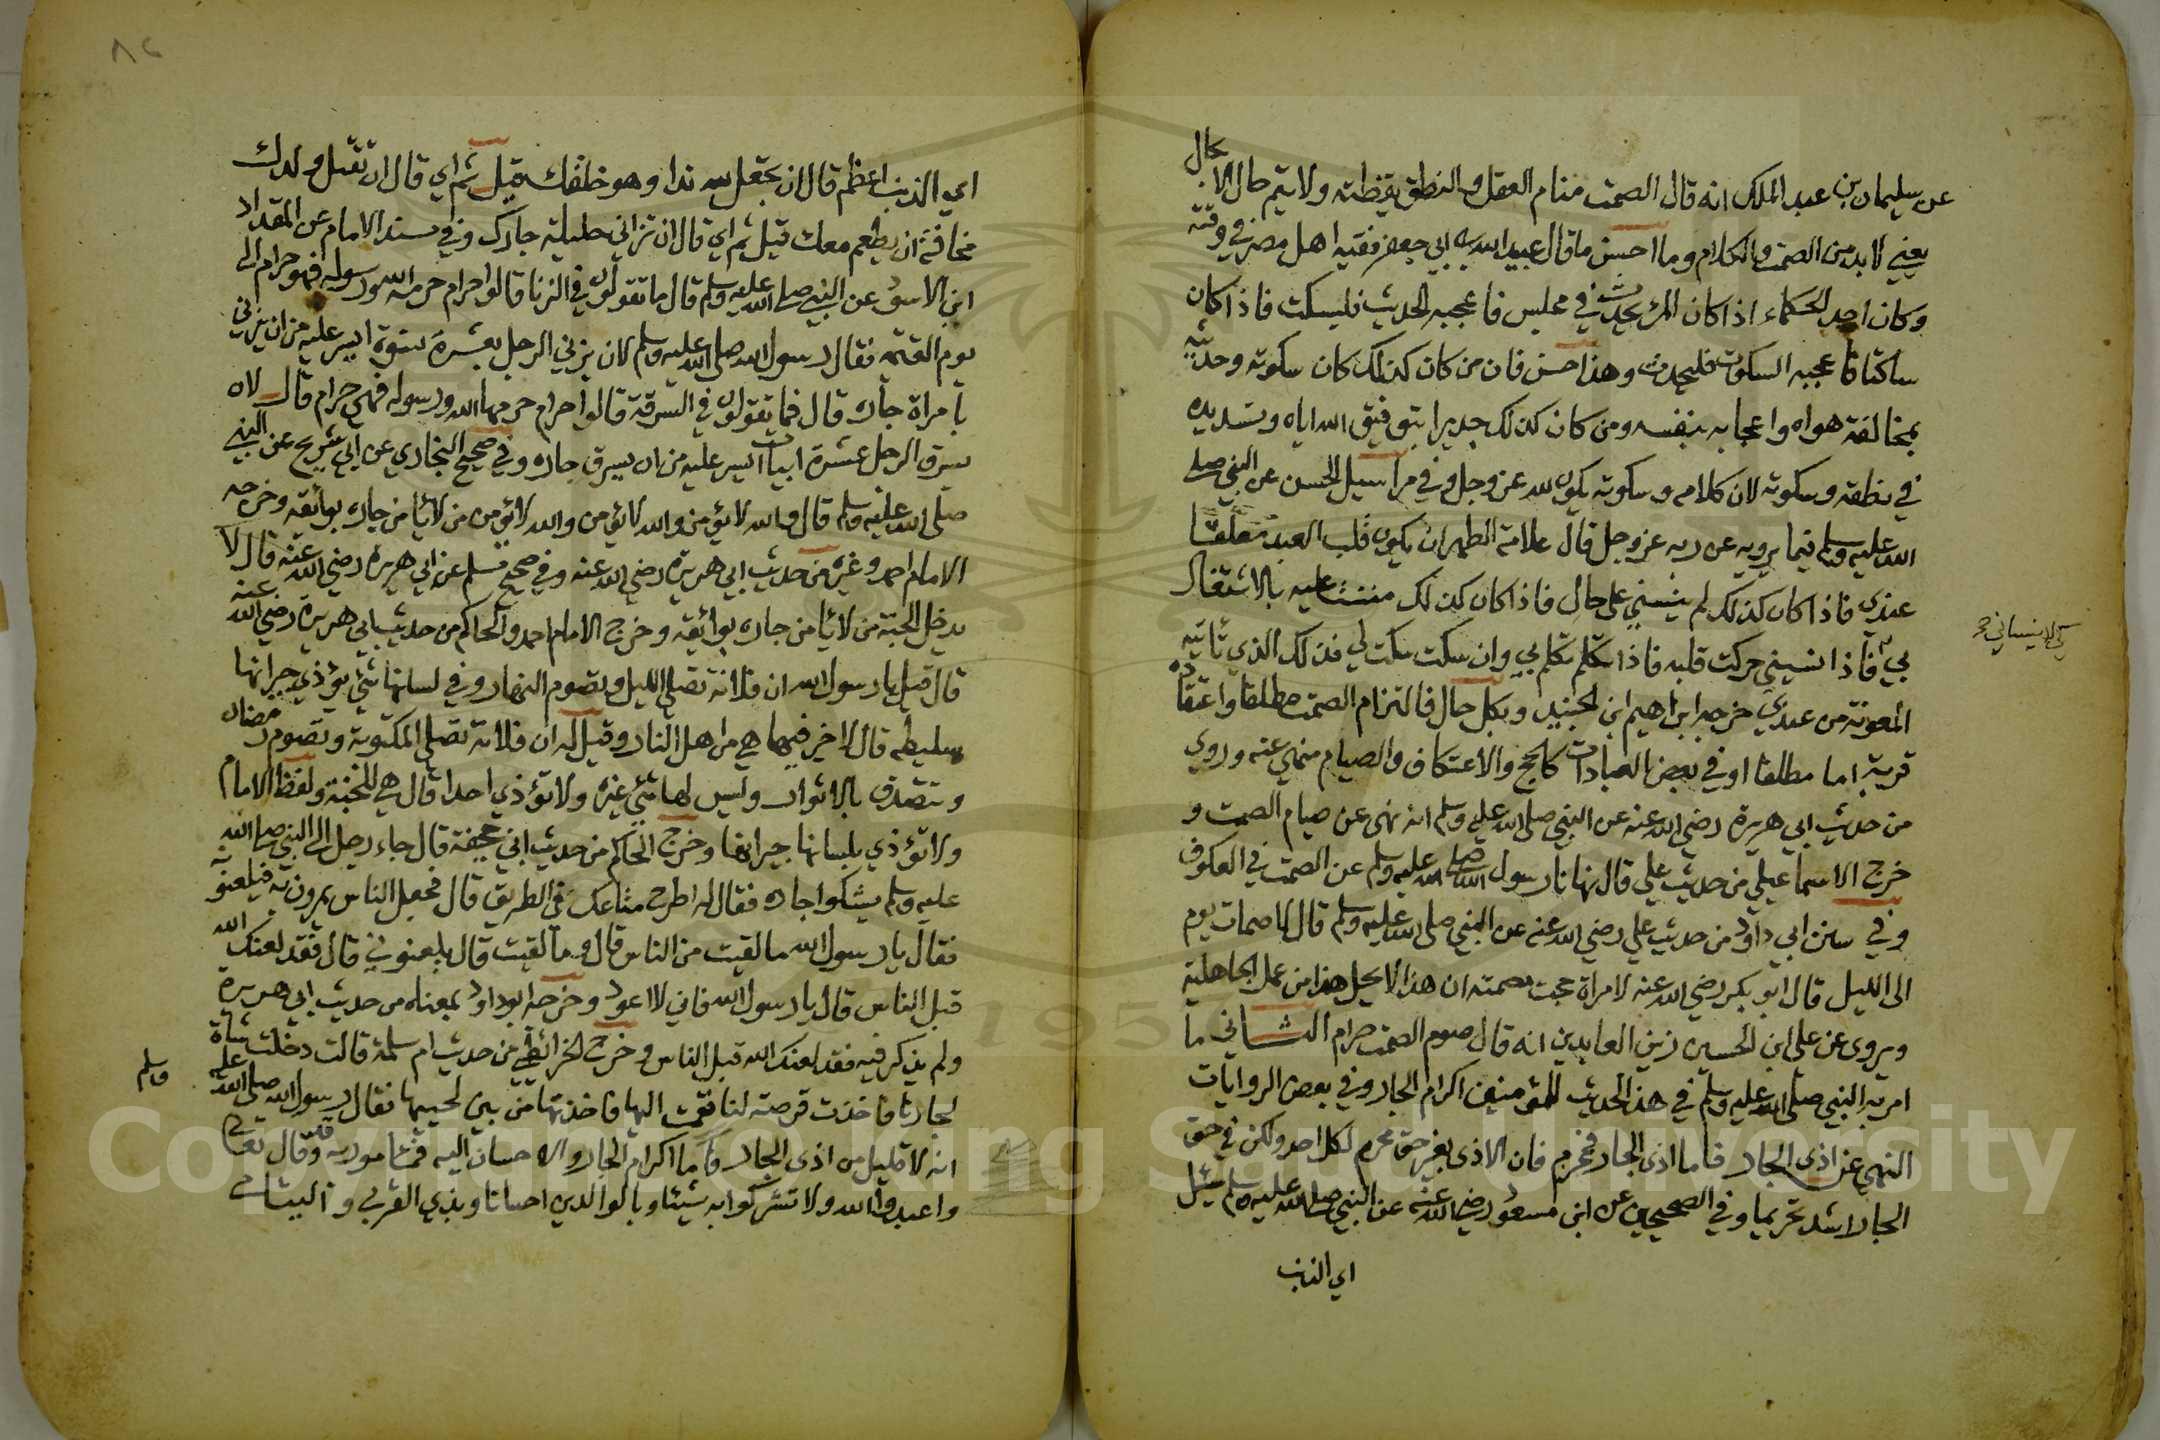 عن سليمان بن عبد الملك انه قال الصمت منام العقل والنطق يقظته ولا يتم حال الا بحال
يعني لا بد من الصمت والكلام وما احسن ما قال عبيد الله بن ابي جعفر فقيه اهل مصر في وقته
وكان احد الحكماء اذا كان المرء يحدث في مجلس فاعجبه الحديث فليسكت فاذا كان
ساكتا فاعجبه السكوت فليحدث وهذا حسن فان من كان كذلك كان سكوته وحديثه
بمخالفة هواه واعجابه بنفسه ومن كان كذلك جديرا بتوفيق الله اياه وتسديده
في نطقه وسكوته لان كلامه وسكوته يكون لله عز وجل وفي مراسيل الحسن عن النبي صلى
الله عليه وسلم فيما يرويه عن ربه عز وجل قال علامة الطهر ان يكون قلب العبد معلقا
عندي فاذا كان كذلك لم ينسني على حال فاذا كان كذلك مننت عليه بالاشتغال
بي فاذا نسيني حركت قلبه فاذا تكلم تكلم بي وان سكت سكت لي فذلك الذي تاتيه
المعونة من عندي خرجه ابراهيم ابن الجنيد وبكل حال فالتزام الصمت مطلقا واعتقاده
قربة اما مطلقا او في بعض العبادات كالحج والاعتكاف والصيام منهي عنه وروي
من حديث ابي هريرة رضي الله عنه عن النبي صلى الله عليه وسلم انه نهى عن صيام الصمت و
خرج الاسماعيلي من حديث علي قال نهانا رسول الله صلى الله عليه وسلم عن الصمت في العكوف
وفي سنن ابي داود من حديث علي رضي الله عنه عن النبي صلى الله عليه وسلم قال لا صمات يوم
الى الليل قال ابو بكر رضي الله عنه لامراة حجت مصمتة ان هذا لا يحل هذا من عمل الجاهلية
وروى عن على ابن الحسين زين العابدين انه قال صوم الصمت حرام الثاني ما
امر به النبي صلى الله عليه وسلم في هذ الحديث للمؤمنين اكرام الجار وفي بعض الروايات
النهي عن اذى الجار فاما اذى الجار فمحرم فان الاذى بغير حق محرم لكل احد ولكن في حق
الجار اشد تحريما وفي الصحيحين عن ابن مسعود رضي الله عنه عن النبي صلى الله عليه وسلم سئل
اي الذنب
اي الذنب اعظم قال ان تجعل لله ندا وهو خلقك قيل ثم اي قال ان تقتل ولدك
مخافة ان يطعم معك قيل ثم اي قال ان تزاني حليلة جارك وفي مسند الامام عن المقداد
ابن الاسود عن النبي صلى الله عليه وسلم قال ما تقولون في الزنا قالوا حرام حرمه الله ورسوله فهو حرام الى
يوم القيمة فقال رسول الله صلى الله عليه وسلم لان يزني الرجل بعشرة نسوة ايسر عليه من ان يزني
بامراة جاره قال فما تقولون في السرقة قالوا حرام حرمها الله ورسوله فهي حرام قال لان
يسرق الرجل عشرة ابيات ايسر عليه من ان يسرق جاره وفي صحيح البخاري عن ابي شريح عن النبي
صلى الله عليه وسلم قال والله لا يؤمن والله لا يؤمن والله لا يؤمن من لا يأمن جاره بوائقه وخرجه
الامام احمد وغيره من حديث ابي هريرة رضي الله عنه وفي صحيح مسلم عن ابي هريرة رضي الله عنه قال لا
يدخل الجنة من لا يأمن جاره بوائقه وخرج الامام احمد والحاكم من حديث ابي هريرة رضي الله عنه
قال قيل يا رسول الله ان فلانة تصلي الليل وتصوم النهار وفي لسانها شيء يؤذي جيرانها
سليطة قال لا خير فيها هي من اهل النار وقيل له ان فلانة تصلي المكتوبة وتصوم رمضان
وتتصدق بالاثوار وليس لها شيء غيره ولا تؤذي احدا قال هي في الجنة ولفظ الامام
ولا تؤذي بلسانها جيرانها وخرج الحاكم من حديث ابي جحيفة قال جاء رجل الى النبي صلى الله
عليه وسلم يشكوا جاره فقال له اطرح متاعك في الطريق قال فجعل الناس يمرون به فيلعنونه
فقال يا رسول الله ما لقيت من الناس قال وما لقيت قال يلعنوني قال فقد لعنك الله
قبل الناس قال يا رسول الله فاني لا اعود وخرجه ابو داود بمعناه من حديث ابي هريرة
ولم يذكر فيه فقد لعنك الله قبل الناس وخرج الخرائطي من حديث ام سلمة قالت دخلت شاة
لجارنا فاخذت قرصة لنا فقمت اليها فاخذتها من بين لحييها فقال رسول الله صلى الله عليه وسلم
انه لا قليل من اذى الجار واما اكرام الجار والاحسان اليه فمامور به وقد قال تعالى
واعبدوا الله ولا تشركوا به شيئا وبالوالدين احسانا وبذي القربى واليتامى
Copyright © King Saud University
1957